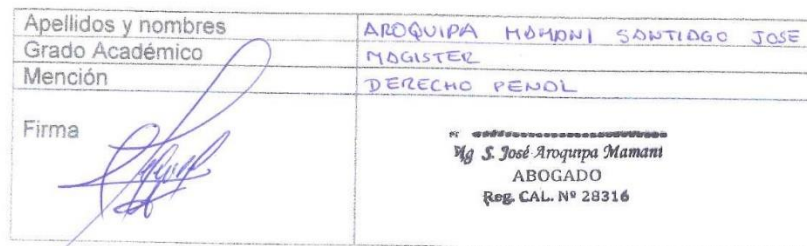 Apellidos y nombres AROQUIPA MAMANI SANTIAGO JOSE
Grado Académico MAGISTER
Mención DERECHO PENAL
Firma
Mg S. José Aroquipa Mamani
ABOGADO
Reg. CAL. Nº 28316